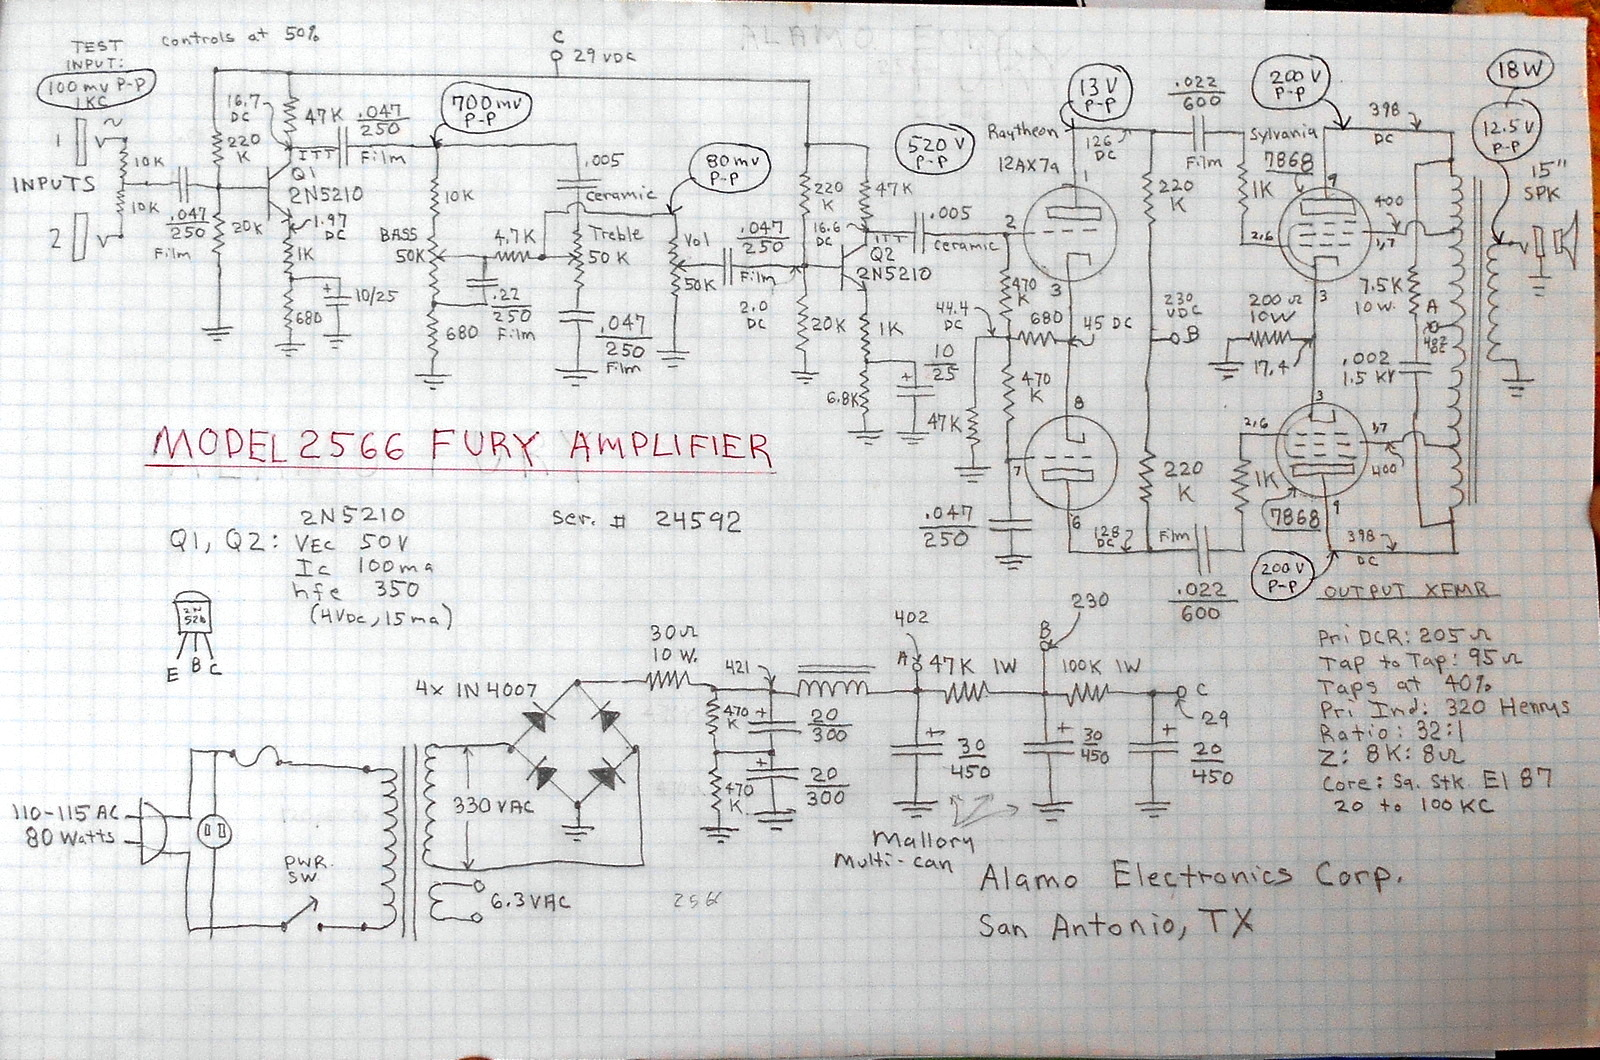 TEST
INPUT:
100 mv P-P
1KC
controls at 50%
C
29 VDC
1
INPUTS
2
10K
10K
.047
250
Film
220
K
20K
16.7
DC
47K
.047
250
Film
Q1
2N5210
1.97
DC
1K
10/25
680
700mv
P-P
10K
BASS
50K
680
4.7K
.22
250
Film
.005
Ceramic
Treble
50K
.047
250
Film
80mv
P-P
Vol
50K
.047
250
Film
2.0
DC
220
K
20K
47K
16.6
DC
Q2
2N5210
1K
10
25
6.8K
520 V
P-P
.005
ceramic
Raytheon
12AX7a
13 V
P-P
126
DC
1
2
3
470
K
680
44.4
DC
45 DC
470
K
47K
8
7
6
.047
250
128
DC
220
K
230
VDC
B
220
K
.022
600
Film
Film
.022
600
200V
P-P
Sylvania
7868
1K
2,6
9
400
1,7
3
200Ω
10W
17.4
3
2,6
1,7
400
1K
7868
9
200V
P-P
398
DC
398
DC
7.5K
10W.
A
.002
1.5 KV
18W
12.5V
P-P
15"
SPK
MODEL 2566 FURY AMPLIFIER
ser. # 24592
Q1, Q2:
2N5210
VEC 50V
Ic 100ma
hfe 350
(4VDC, 15ma)
E B C
4x IN4007
30Ω
10 W.
421
470
K
470
K
20
300
20
300
402
A
47K 1W
30
450
B
230
100K 1W
30
450
C
29
20
450
Mallory
Multi-can
110-115 AC
80 Watts
PWR.
SW
330 VAC
6.3VAC
256
OUTPUT XFMR
Pri DCR: 205Ω
Tap to Tap: 95Ω
Taps at 40%
Pri Ind: 320 Henrys
Ratio: 32:1
Z: 8K:8Ω
Core: Sq. Stk. EI 87
20 to 100KC
Alamo Electronics Corp.
San Antonio, TX